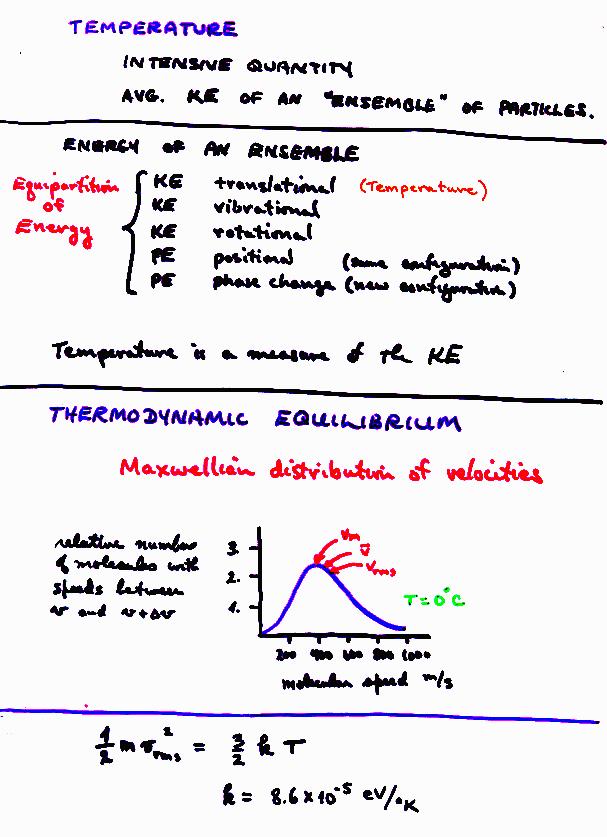 TEMPERATURE
INTENSIVE QUANTITY
AVG. KE OF AN "ENSEMBLE" OF PARTICLES.
ENERGY OF AN ENSEMBLE
Equipartition of Energy
KE translational (Temperature)
KE vibrational
KE rotational
PE positional (same configuration)
PE phase change (new configuration)
Temperature is a measure of the KE
THERMODYNAMIC EQUILIBRIUM
Maxwellian distribution of velocities
relative number
of molecules with
speeds between
v and v+Δv
3.
2.
1.
vm
v̄
vrms
T=0°C
200 400 600 800 1000
molecular speed m/s
1/2 m v²rms = 3/2 k T
k = 8.6 x 10⁻⁵ eV/°K